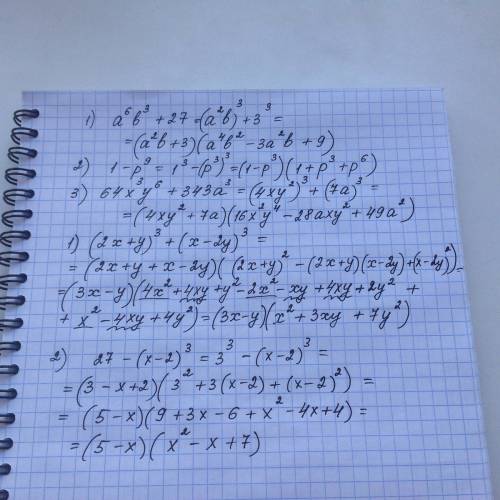 1) a⁶b³ + 27 = (a²b)³ + 3³ =
= (a²b + 3)(a⁴b² - 3a²b + 9)
2) 1 - p⁹ = 1³ - (p³)³ = (1 - p³)(1 + p³ + p⁶)
3) 64x³y⁶ + 343a³ = (4xy²)³ + (7a)³ =
= (4xy² + 7a)(16x²y⁴ - 28axy² + 49a²)
1) (2x + y)³ + (x - 2y)³ =
= (2x + y + x - 2y)((2x + y)² - (2x + y)(x - 2y) + (x - 2y)²) =
= (3x - y)(4x² + 4xy + y² - 2x² - xy + 4xy + 2y² +
+ x² - 4xy + 4y²) = (3x - y)(x² + 3xy + 7y²)
2) 27 - (x - 2)³ = 3³ - (x - 2)³ =
= (3 - x + 2)(3² + 3(x - 2) + (x - 2)²) =
= (5 - x)(9 + 3x - 6 + x² - 4x + 4) =
= (5 - x)(x² - x + 7)